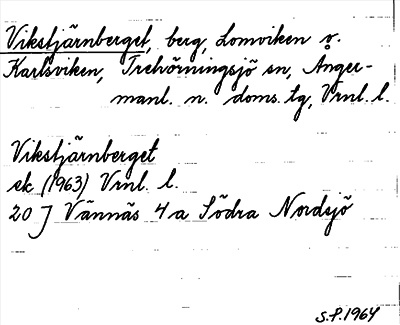 Vikstjärnberget, berg, Lomviken o.
Karlsviken, Trehörningsjö sn, Ånger-
manl. n. doms. tg, Vrnl. l.
Vikstjärnberget
ek (1963) Vrnl. l.
20 J Vännäs 4a Södra Nordsjö
S.P. 1964